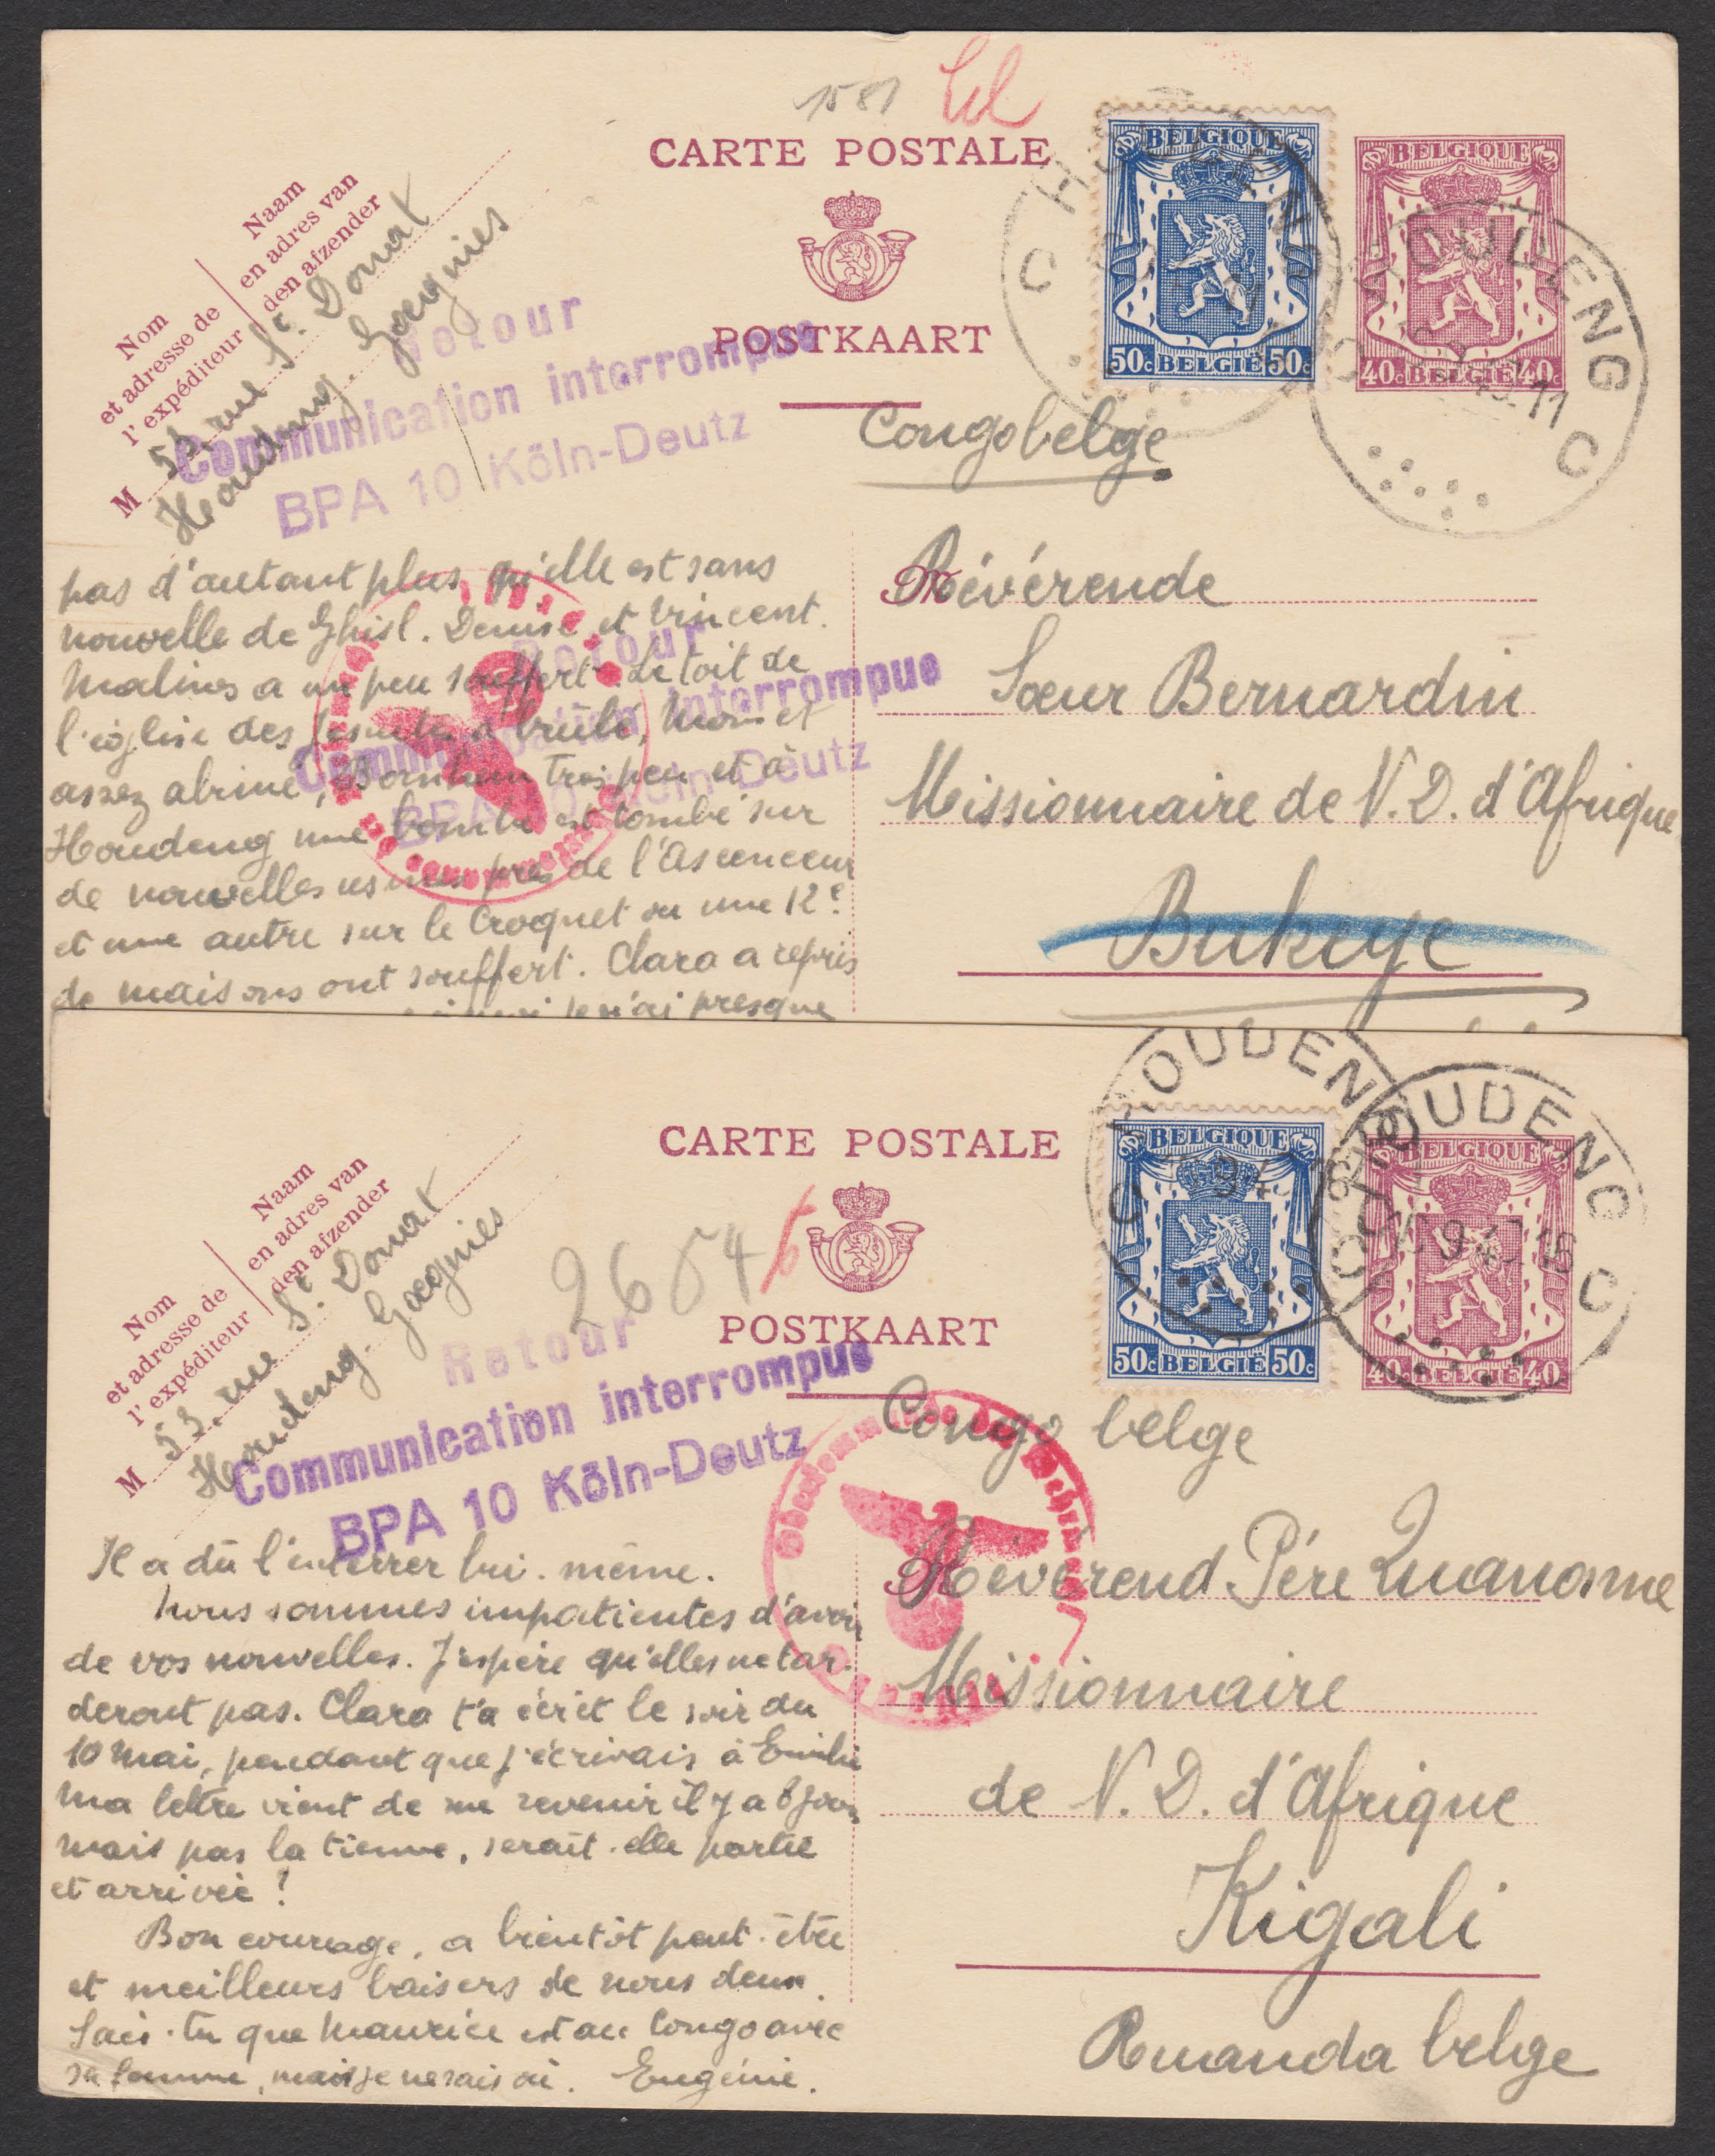 1581
CARTE POSTALE
POSTKAART
BELGIQUE
50c BELGIË 50c
BELGIQUE
40c BELGIË 40c
HOUDENG
C C
HOUDENG
11
C
Nom
et adresse de
l'expéditeur
Naam
en adres van
den afzender
M 53, rue St. Donat
Houdeng-Goegnies
Retour
Communication interrompue
BPA 10 Köln-Deutz
Congo belge
Révérende
Sœur Bernardin
Missionnaire de N. D. d'Afrique
Bukeye
pas d'autant plus qu'elle est sans
nouvelle de Ghisl. Denise et Vincent.
Malines a un peu souffert. Le toit de
l'église des Jésuites a brûlé, Mons et
assez abimé, très peu et à
Houdeng une bombe est tombé sur
de nouvelles usines près de l'Ascenceur
et une autre sur le Croquet ou une 12e
de maisons ont souffert. Clara a repris
je n'ai presque
Retour
Communication interrompue
BPA 10 Köln-Deutz
CARTE POSTALE
POSTKAART
BELGIQUE
50c BELGIË 50c
BELGIQUE
40c BELGIË 40
HOUDENG
C
HOUDENG
C
Nom
et adresse de
l'expéditeur
Naam
en adres van
den afzender
M 53, rue St. Donat
Houdeng-Goegnies
2654
Retour
Communication interrompue
BPA 10 Köln-Deutz
Oberkommando der Wehrmacht
Congo belge
Révérend Père
Missionnaire
de N. D. d'Afrique
Kigali
Ruanda belge
Il a dû l'enterrer lui-même.
Nous sommes impatientes d'avoir
de vos nouvelles. J'espère qu'elles ne tar-
deront pas. Clara t'a écrit le soir du
10 mai, pendant que j'écrivais à Emilie
Ma lettre vient de me revenir il y a 8 jours
mais pas la tienne, serait-elle partie
et arrivée !
Bon courage, a bientôt peut-être
et meilleurs baisers de nous deux.
Sais-tu que Maurice est au Congo avec
sa femme, mais je ne sais où. Eugénie.